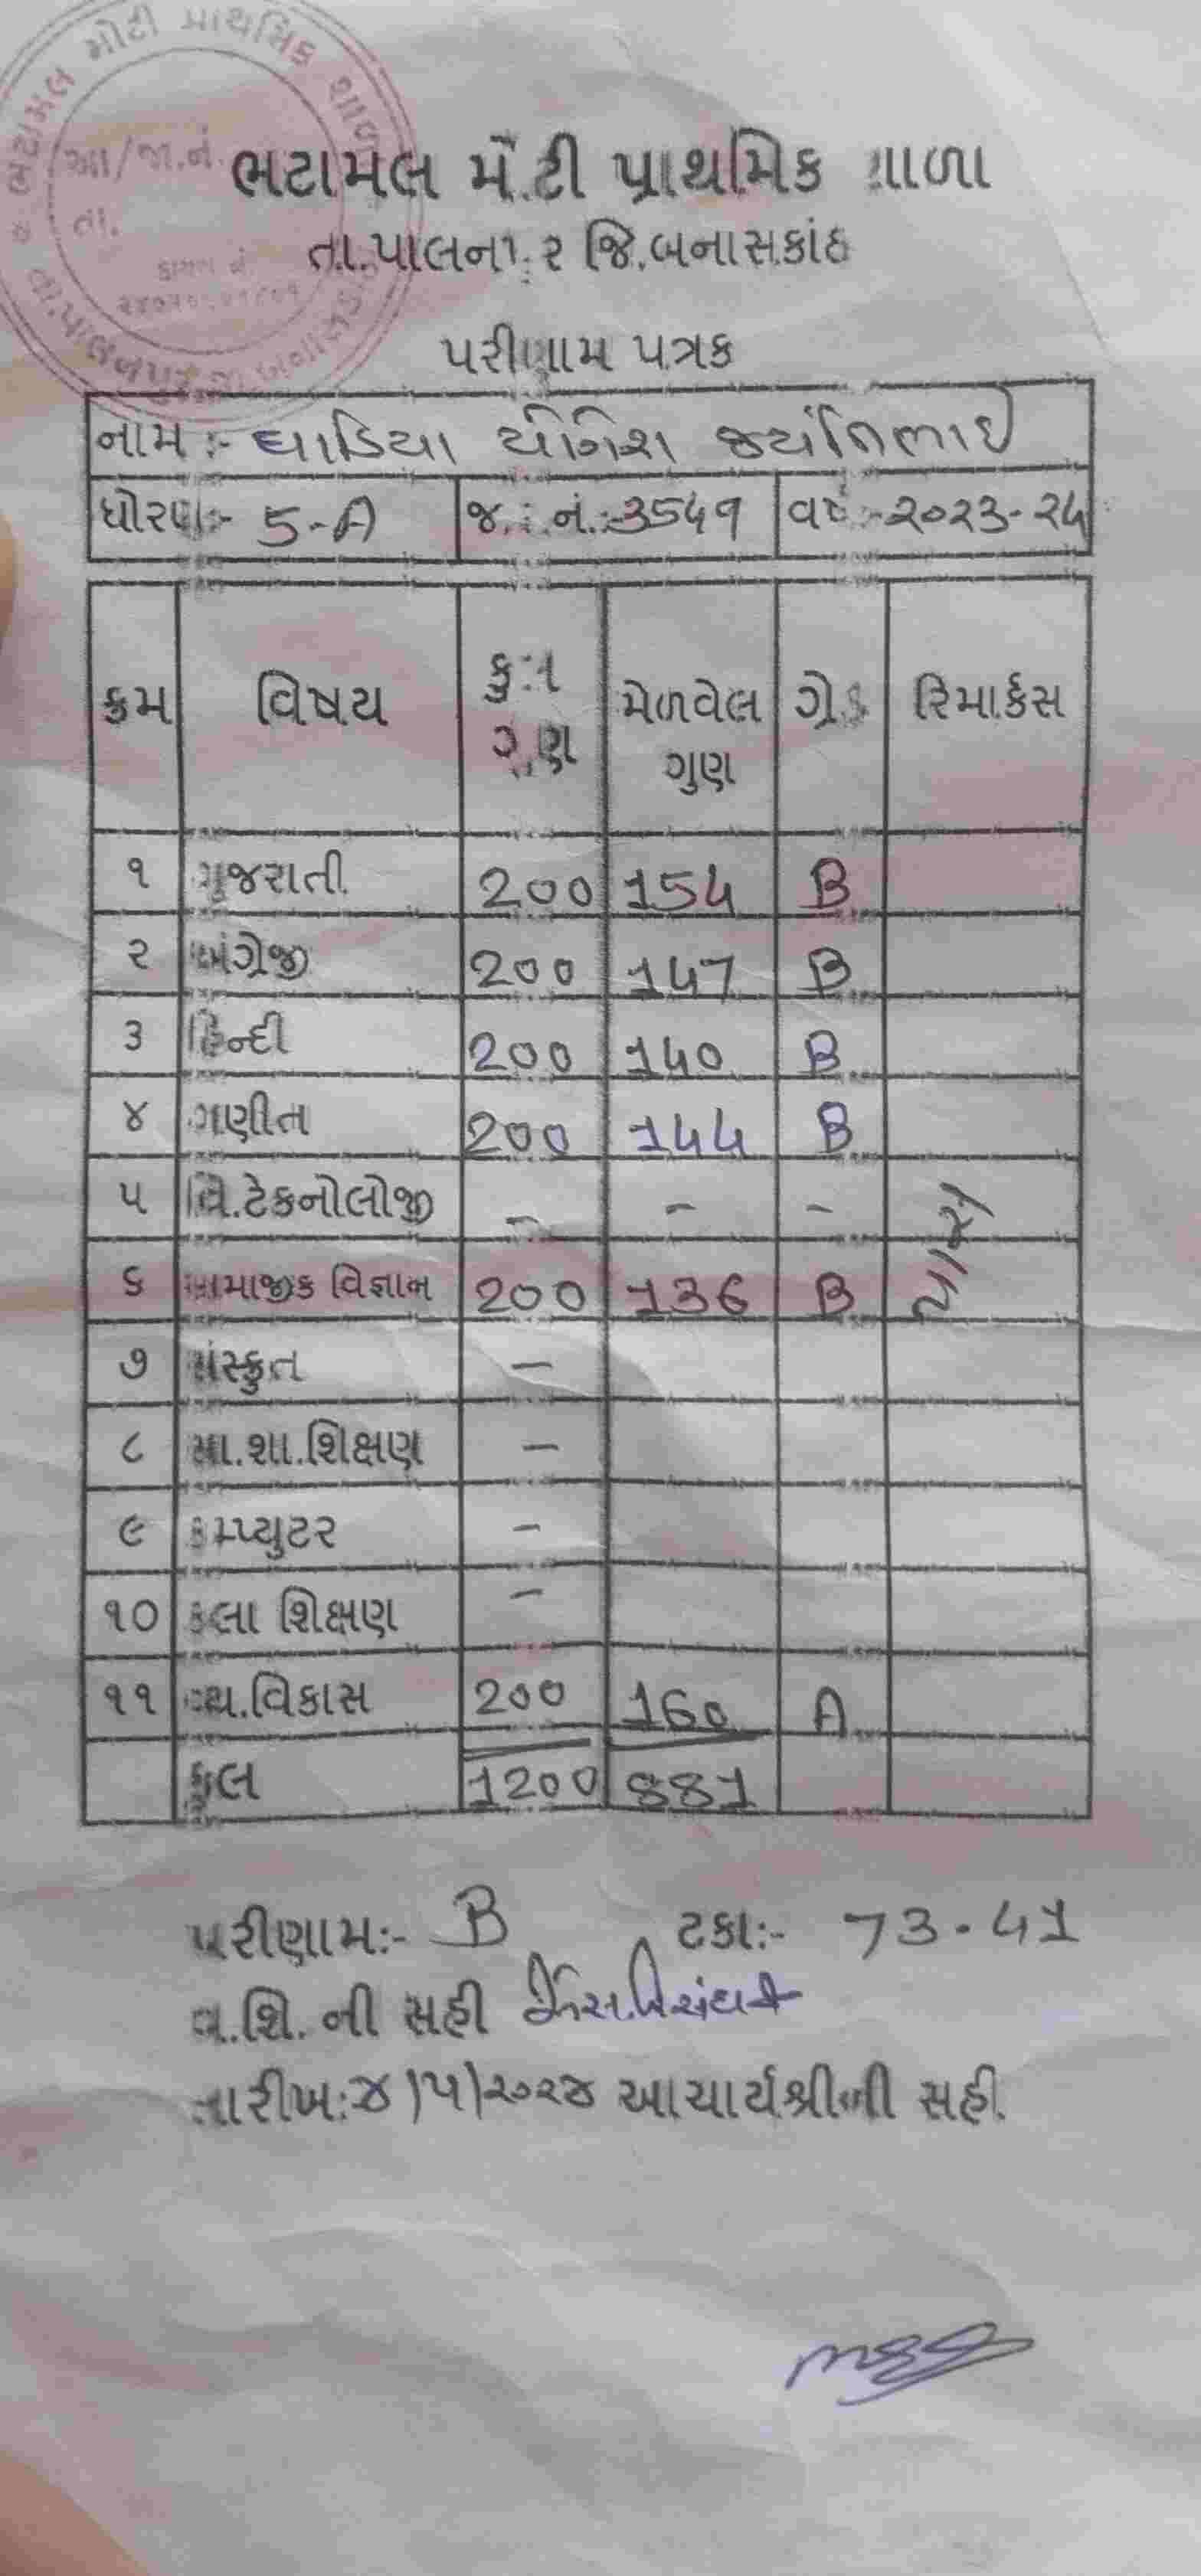 ભટામલ મોટી પ્રાથમિક શાળા
આ/જા.નં.
તા.
ભટામલ મોટી પ્રાથમિક શાળા
તા.પાલનપુર જિ.બનાસકાંઠા
પરીણામ પત્રક
નામ:- ઘાડિયા યોગેશ જયંતિભાઈ
ધોરણ:- 5-A જ. નં.:3549 વર્ષ:-૨૦૨૩-૨૪
ક્રમ વિષય કુલ ગુણ મેળવેલ ગુણ ગ્રેડ રિમાર્કસ
૧ ગુજરાતી 200 154 B
૨ અંગ્રેજી 200 147 B
૩ હિન્દી 200 140 B
૪ ગણીત 200 144 B
૫ વિ.ટેકનોલોજી - - -
૬ સામાજીક વિજ્ઞાન 200 136 B પાસ
૭ સંસ્કૃત -
૮ સા.શા.શિક્ષણ -
૯ કમ્પ્યુટર -
૧૦ કલા શિક્ષણ -
૧૧ વ્ય.વિકાસ 200 160 A
કુલ 1200 881
પરીણામ:- B ટકા:- 73.41
વ.શિ. ની સહી
તારીખ:૪/૫/૨૦૨૪ આચાર્યશ્રીની સહી.